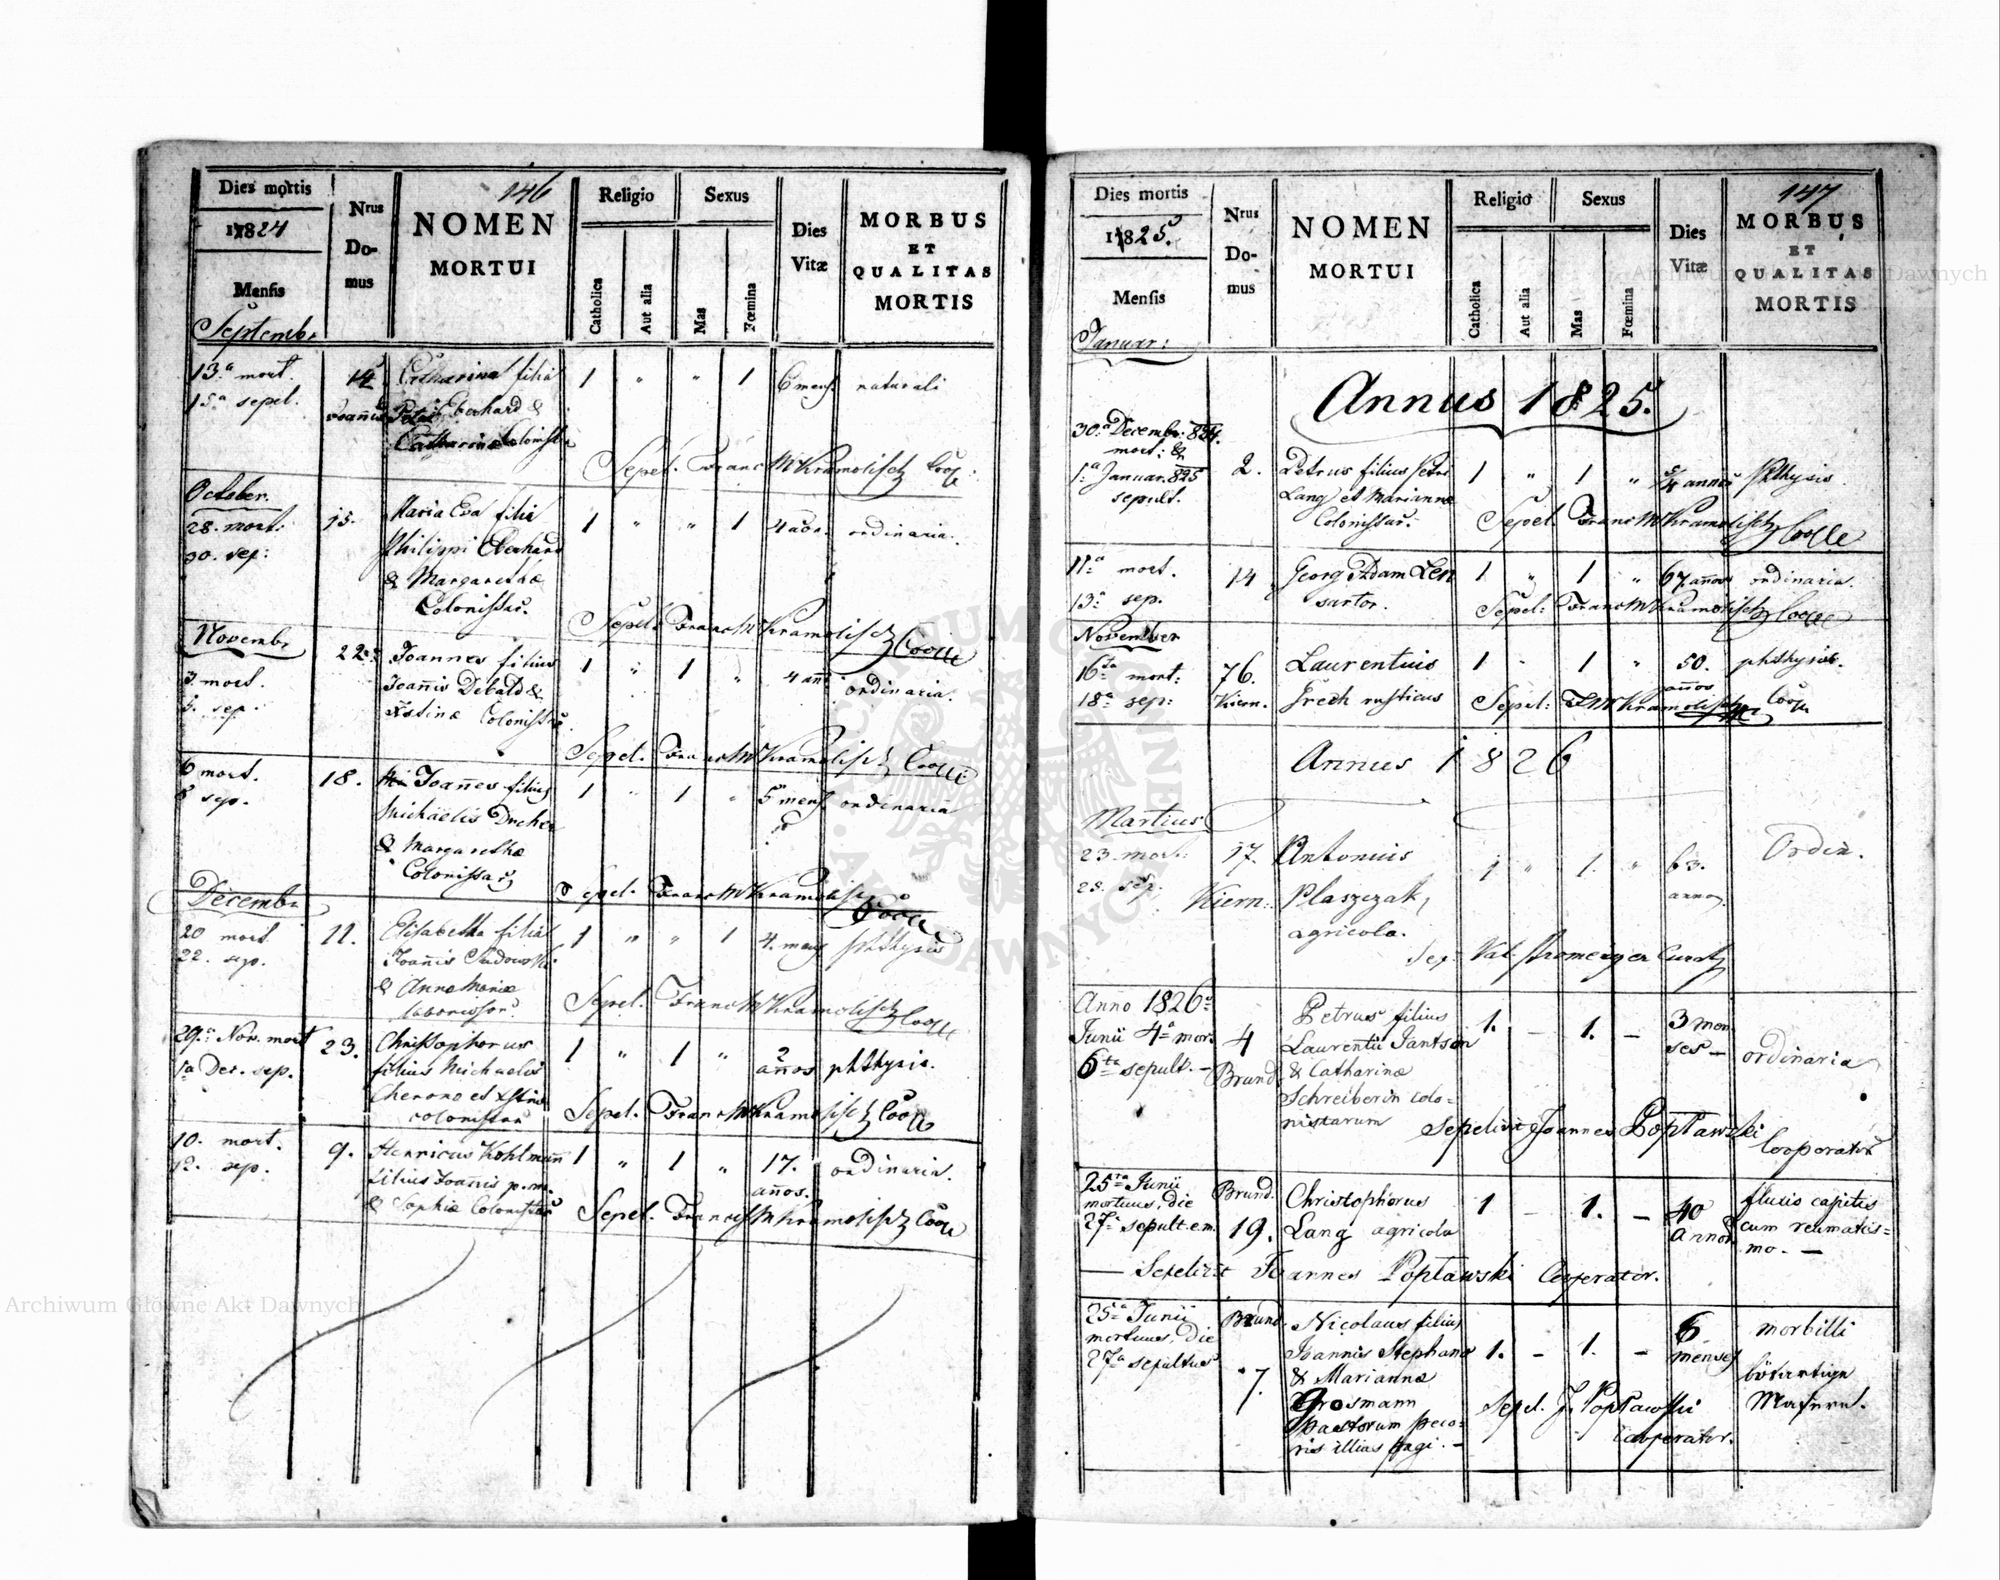 146
Dies mortis
1824
Mensis
Septembr
Nrus
Do-
mus
NOMEN
MORTUI
Religio
Catholica
Aut alia
Sexus
Mas
Fœmina
Dies
Vitæ
MORBUS
ET
QUALITAS
MORTIS
13.a mort.
15.a sepel.
14
Catharina filia
Petri Eberhard &
Catharinæ Colonissar
1 " " 1
6 mens
naturali
Sepel. Franc M Kramolisch Coop:
October.
28. mort:
30. sep:
15.
Maria Eva filia
Philippi Eberhard
& Margarethæ
Colonissar.
1 " " 1
4 ador.
ordinaria.
Sepel. Franc M Kramolisch Coope
Novembr
3. mort.
5. sep.
22.
Joannes filius
Joannis Debald &
Xstinæ Colonissar
1 " 1 "
4 añ
ordinaria.
Sepel. Franc M Kramolisch Coope
6 mort.
8 sep.
18.
Joañes filius
Michaëlis Dreher
& Margarethæ
Colonissar
1 " 1 "
5 mens
ordinaria
Sepel. Franc M Kramolisch
Coope
Decembr
20 mort.
22. sep.
11.
Elisabetha filia
Joañis Sadowski
& Annæ Mariæ
laborissar.
1 " " 1
4. mens
phthysis
Sepel. Franc M Kramolisch Coope
29.a Nov. mort
1a Dec. sep.
23.
Christophorus
filius Michaelis
Cherono et Xstinæ
colonissar
1 " 1 "
2
años
phthysis.
Sepel. Franc M Kramolisch Coope
10. mort.
12. sep.
9.
Henricus Kohlmann
filius Joañis p.m.
& Sophiæ Colonissar
1 " 1 "
17.
años.
ordinaria.
Sepel. Franc M Kramolisch Coope
147
Dies mortis
1825.
Mensis
Januar:
Nrus
Do-
mus
NOMEN
MORTUI
Religio
Catholica
Aut alia
Sexus
Mas
Fœmina
Dies
Vitæ
MORBUS
ET
QUALITAS
MORTIS
Annus 1825.
30.a Decembr: 824.
mort: &
1.a Januar. 825
sepult.
2.
Petrus filius Petri
Lang et Mariannæ
Colonissar.
1 " 1 "
5/4 annor
Phthysis.
Sepel. Franc M Kramolisch Coope
11.a mort.
13.a sep.
14
Georg Adam Len
sartor.
1 " 1 "
67 años
ordinaria.
Sepel: Franc M Kramolisch Coope
November
16ta mort:
18.a sep:
76.
Kiern.
Laurentius
Grech rusticus
1 - 1 "
50.
años
phthysis.
Sepel: F M Kramolisch Coope
Annus 1826
Martius
23. mort:
25. sep.
17.
Kiern:
Antonius
Plaszczak,
agricola.
1 " 1. "
63.
annor.
Ordin.
Sep: Val. Stromenger Curat
Anno 1826o
Junii 4a mor.
6ta sepult. -
4
Brund.
Petrus filius
Laurentii Jantson
& Catharinæ
Schreiberin colo-
nistarum
1. - 1. -
3 men
ses -
ordinaria
Sepelivit Joannes Popławski
Cooperator
25ta Junii
mortuus, die
27a sepult. e.m.
Brund.
19.
Christophorus
Lang agricola
1 - 1. -
40
annor.
fluxio capitis
cum reumatis-
mo. -
Sepelivit Joannes Popławski Cooperator.
25a Junii
mortuus, die
27a sepultus
Brund
7.
Nicolaus filius
Joannis Stephan
& Mariannæ
Grosmann
Pastorum peco-
ris illius pagi. -
1. - 1. -
6
menses
morbilli
bösartige
Masern.
Sepel. J. Popławski
Cooperator.
Archiwum Główne Akt Dawnych
Archiwum Główne Akt Dawnych
ARCHIWUM GŁÓWNE AKT DAWNYCH